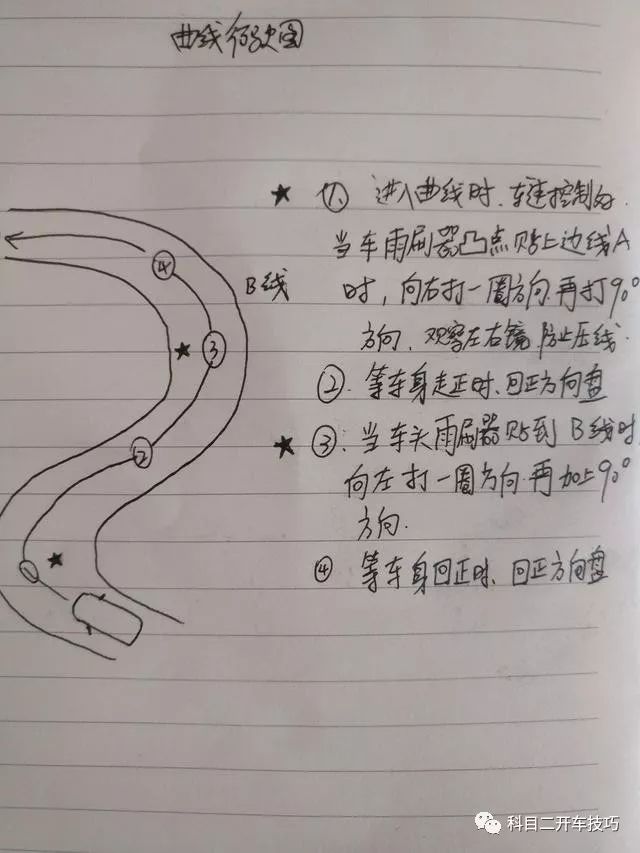 曲线行驶图
★ ①、进入曲线时、车速控制好.
当车雨刷器凸点贴上边线A
时，向右打一圈方向.再打90°
方向、观察左右镜.防止压线.
②. 等车身走正时、回正方向盘
★ ③: 当车头雨刷器贴到B线时
向左打一圈方向.再加上90°
方向.
④ 等车身回正时、回正方向盘
B线
④
③
②
科目二开车技巧